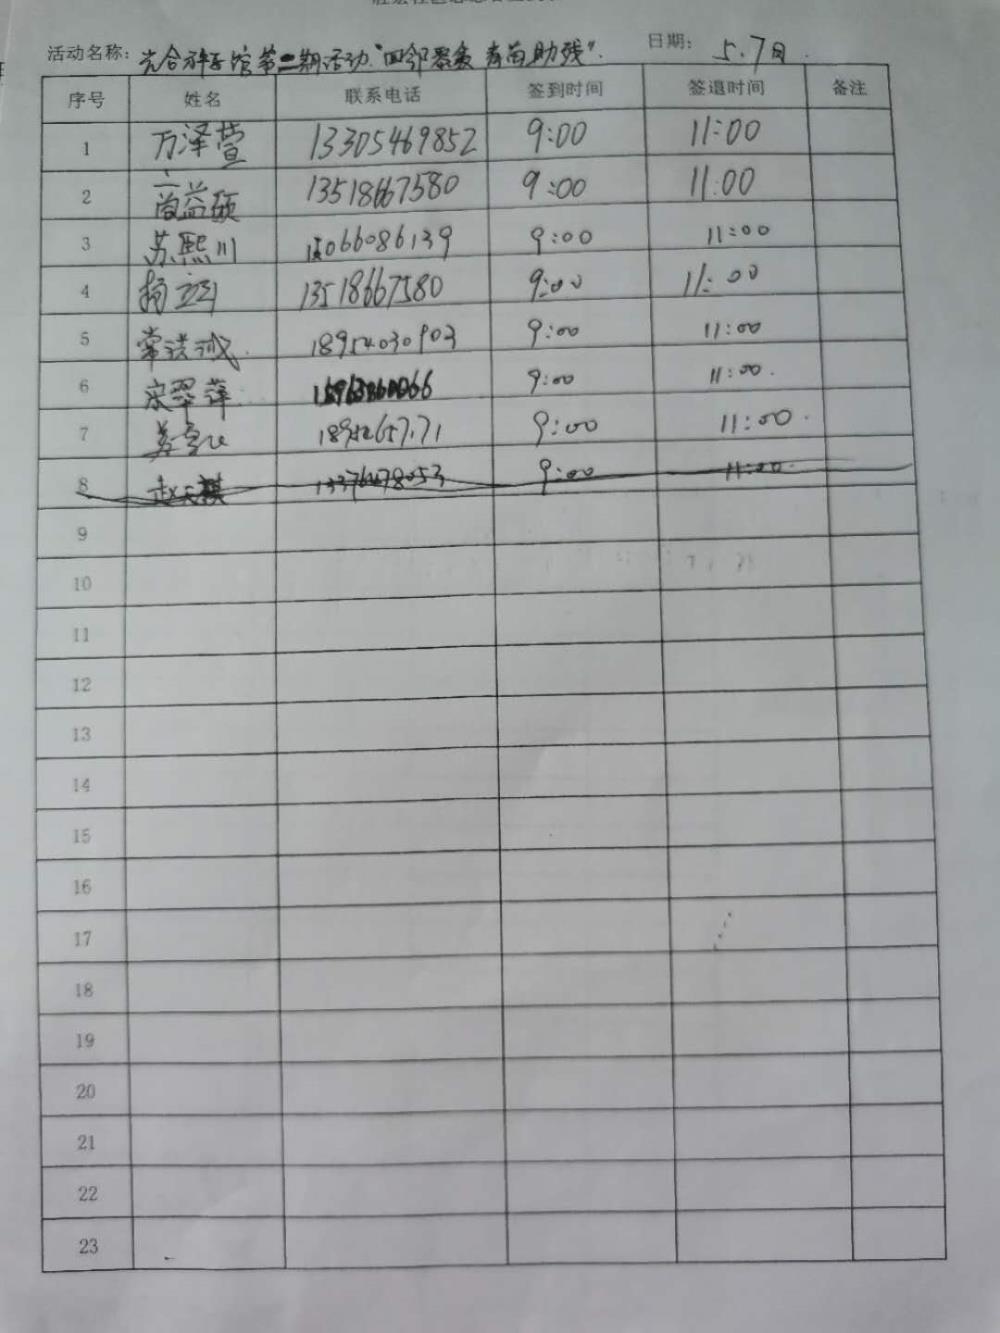 活动名称: 光合种子馆第二期活动“四邻聚爱 青苗助残”. 日期: 5.7日.
序号 姓名 联系电话 签到时间 签退时间 备注
1 万泽萱 13305469852 9:00 11:00
2 尚益硕 13518667580 9:00 11:00
3 苏熙川 15066086139 9:00 11:00
4 13518667580 9:00 11:00
5 常洪诚 18954030903 9:00 11:00
6 宋翠萍 9:00 11:00
7 9:00 11:00
8 赵天祺 9:00 11:00
9
10
11
12
13
14
15
16
17
18
19
20
21
22
23